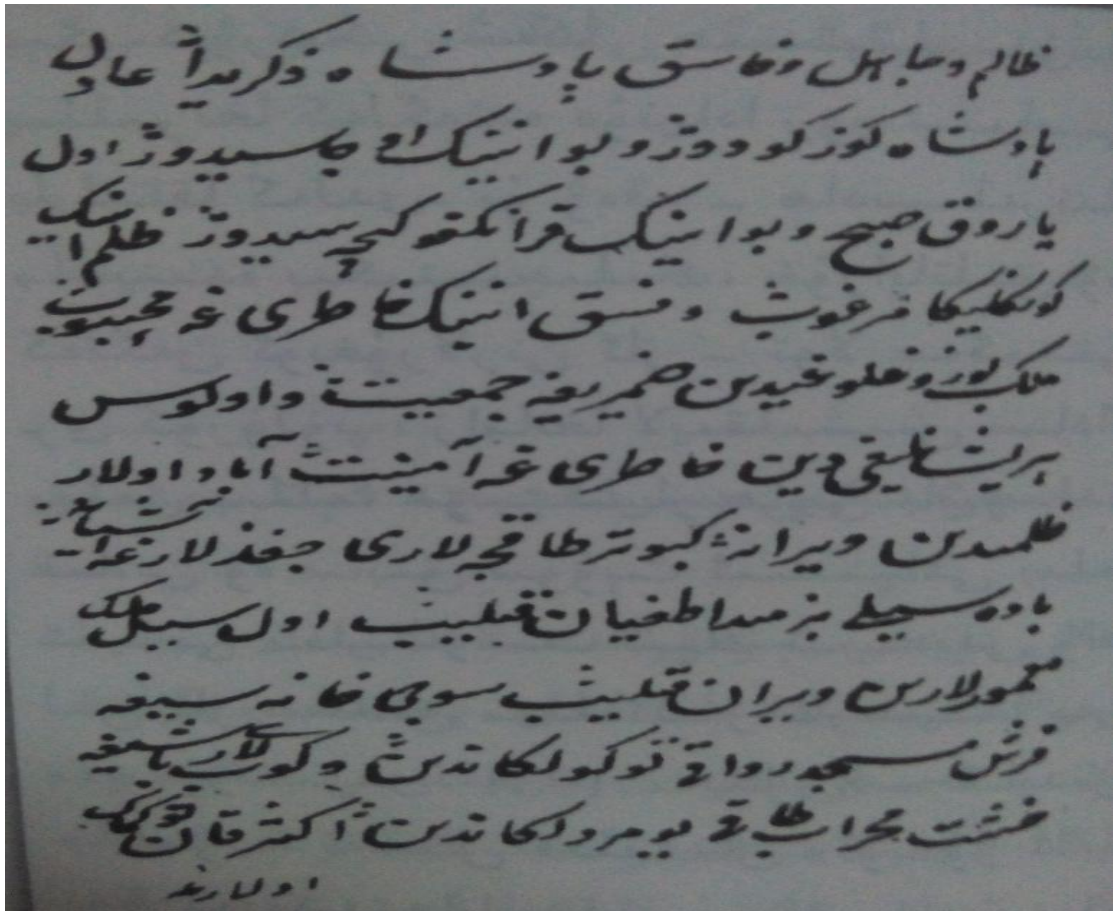 ظالم و جاهل و فاسق پادشاه ذکریدا عادل
پادشاه کوزکودور و بو انینک اوچاسیدور اول
یاروق صبح و بو انینک قرانکقو کیچه سیدور ظلم انینک
کونکلیکا مرغوب و فسق انینک خاطری غه محبوب
ملک بوزوغلوغیدین ضمیریغه جمعیت و اولوس
پریشانلیغی دین خاطری غه آمنیت آباد اولار
ظلمیدن ویرانه کبوتر طاقچه لاری جغذلارغه آشیانه
باده سیلی بزمیدا طغیان قیلیب اول سیل ملک
معمورلارین ویران قیلیب سوجی خانه سیغه
فرش مسجد رواقی توکولکاندین و کوپ لاری باشیغه
خشت محراب طاقی یومرولکاندین اکثر
اولارنه